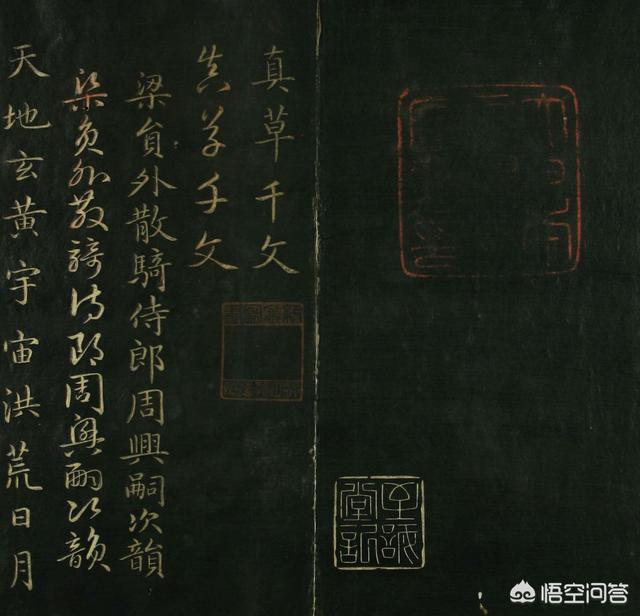 真草千文
真草千文
梁員外散騎侍郎周興嗣次韻
梁員外散騎侍郎周興嗣次韻
天地玄黃宇宙洪荒日月
悟空问答